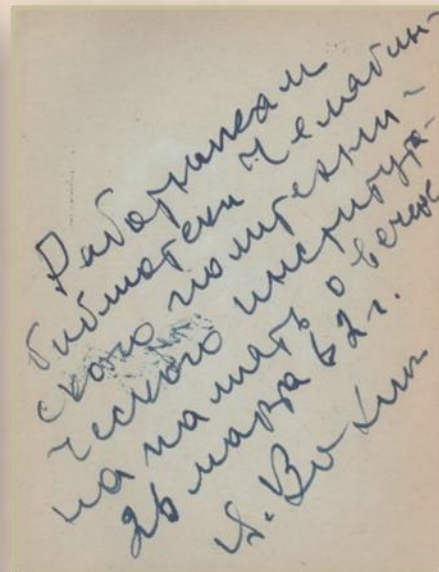 Работникам
библиотеки Челябин-
ского политехни-
ческого института-
на память о вечере
26 марта 62 г.
Я. Вохмин